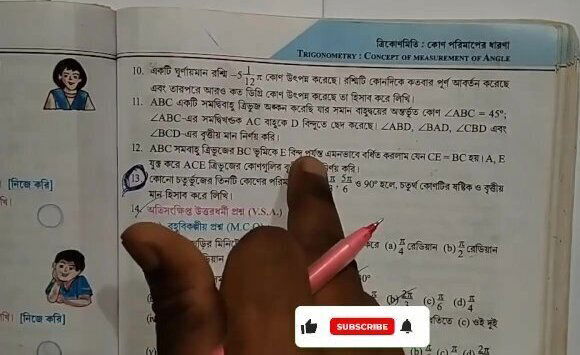 ত্রিকোণমিতি : কোণ পরিমাপের ধারণা
TRIGONOMETRY : CONCEPT OF MEASUREMENT OF ANGLE
10. একটি ঘূর্ণায়মান রশ্মি −5 1/12 π কোণ উৎপন্ন করেছে। রশ্মিটি কোনদিকে কতবার পূর্ণ আবর্তন করেছে
এবং তারপরে আরও কত ডিগ্রি কোণ উৎপন্ন করেছে তা হিসাব করে লিখি।
11. ABC একটি সমদ্বিবাহু ত্রিভুজ অঙ্কন করেছি যার সমান বাহুদ্বয়ের অন্তর্ভূত কোণ ∠ABC = 45°;
∠ABC-এর সমদ্বিখণ্ডক AC বাহুকে D বিন্দুতে ছেদ করেছে। ∠ABD, ∠BAD, ∠CBD এবং
∠BCD-এর বৃত্তীয় মান নির্ণয় করি।
12. ABC সমবাহু ত্রিভুজের BC ভূমিকে E বিন্দু পর্যন্ত এমনভাবে বর্ধিত করলাম যেন CE = BC হয়। A, E
যুক্ত করে ACE ত্রিভুজের কোণগুলির নির্ণয় করি।
13. কোনো চতুর্ভুজের তিনটি কোণের পরিমাপ 5π/6 ও 90° হলে, চতুর্থ কোণটির ষষ্টিক ও বৃত্তীয়
মান হিসাব করে লিখি।
[নিজে করি]
14. অতিসংক্ষিপ্ত উত্তরধর্মী প্রশ্ন (V.S.A.)
বহুবিকল্পীয় প্রশ্ন (M.C.Q)
করে (a) π/4 রেডিয়ান (b) π/2 রেডিয়ান
(b) 2π/3 (c) π/6 (d) π/4
[নিজে করি]
(c) ওই দুই
SUBSCRIBE